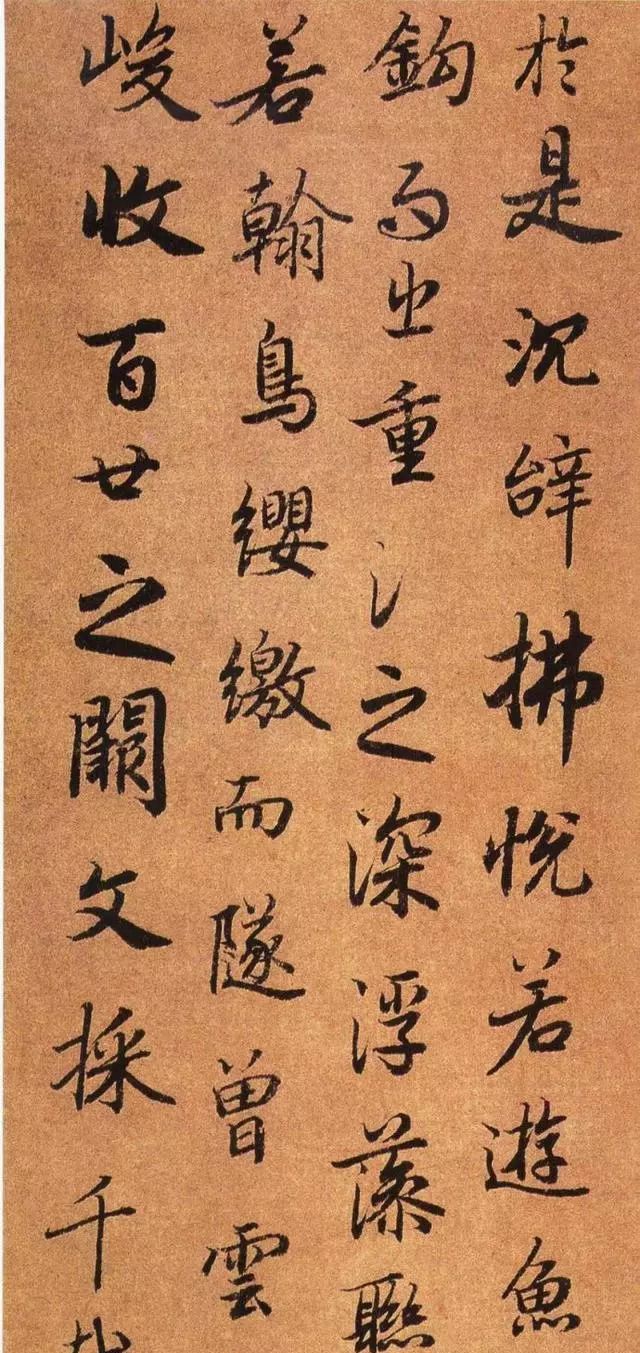 於是沉辝拂悅若遊魚
鈎而出重氵之深浮藻聯
若翰鳥纓繳而隊曾雲
峻收百廿之闕文採千